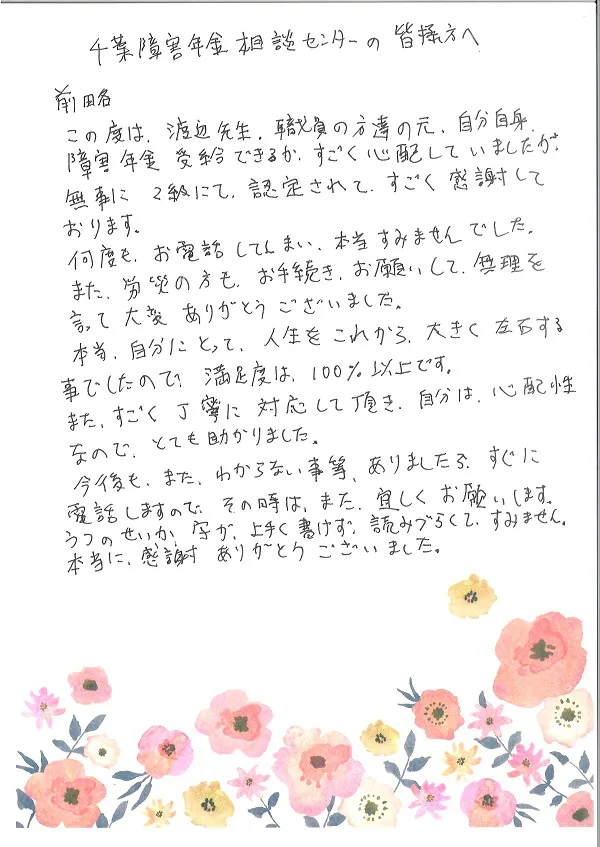 千葉障害年金相談センターの皆様方へ
前略
この度は、渡辺先生、職員の方達の元、自分自身、
障害年金 受給できるか、すごく心配していましたが、
無事に 2級にて、認定されて、すごく感謝して
おります。
何度も、お電話してしまい、本当すみませんでした。
また、労災の方も、お手続き、お願いして、無理を
言って大変ありがとうございました。
本当、自分にとって、人生をこれから、大きく左右する
事でしたので、満足度は、100%以上です。
また、すごく丁寧に対応して頂き、自分は、心配性
なので、とても助かりました。
今後も、また、わからない事等、ありましたら、すぐに
電話しますので、その時は、また、宜しくお願いします。
うつのせいか、字が、上手く書けず、読みづらくて、すみません。
本当に、感謝 ありがとうございました。